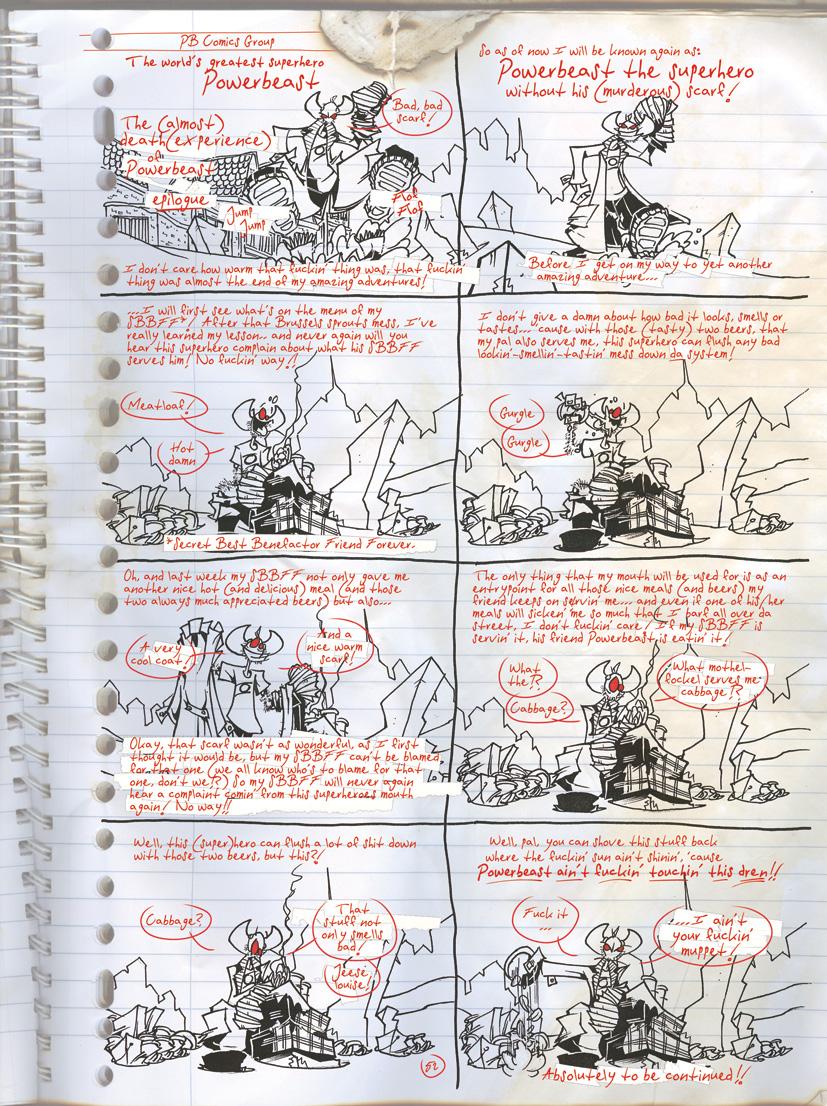 PB Comics Group
The world's greatest superhero
Powerbeast
The (almost)
death(experience)
of
Powerbeast
epilogue
Bad, bad
scarf!
Jump
Jump
Flof
Flof
I don't care how warm that fuckin' thing was, that fuckin'
thing was almost the end of my amazing adventures!
So as of now I will be known again as:
Powerbeast the superhero
without his (murderous) scarf!
Before I get on my way to yet another
amazing adventure...
...I will first see what's on the menu of my
SBBFF*! After that Brussels sprouts mess, I've
really learned my lesson... and never again will you
hear this superhero complain about what his SBBFF
serves him! No fuckin' way!!
Meatloaf!
Hot
damn
*Secret Best Benefactor Friend Forever.
I don't give a damn about how bad it looks, smells or
tastes... 'cause with those (tasty) two beers, that
my pal also serves me, this superhero can flush any bad
lookin'-smellin'-tastin' mess down da system!
Gurgle
Gurgle
Oh, and last week my SBBFF not only gave me
another nice hot (and delicious) meal (and those
two always much appreciated beers) but also...
A very
cool coat!
And a
nice warm
scarf!
Okay, that scarf wasn't as wonderful, as I first
thought it would be, but my SBBFF can't be blamed
for that one (we all know who's to blame for that
one, don't we?) So my SBBFF will never again
hear a complaint comin' from this superheroes mouth
again! No way!!
The only thing that my mouth will be used for is as an
entrypoint for all those nice meals (and beers) my
friend keeps on servin' me.... and even if one of his/her
meals will sicken me so much that I barf all over da
street, I don't fuckin' care! If my SBBFF is
servin' it, his friend Powerbeast is eatin' it!
What
the!?
Cabbage?
What mothel-
fockel serves me
cabbage!?
Well, this (super)hero can flush a lot of shit down
with those two beers, but this?!
Cabbage?
That
stuff not
only smells
bad!
Jeese
Louise!
52
Well, pal, you can shove this stuff back
where the fuckin' sun ain't shinin', 'cause
Powerbeast ain't fuckin' touchin' this dren!!
Fuck it
...
.... I ain't
your fuckin'
muppet!
Absolutely to be continued!!